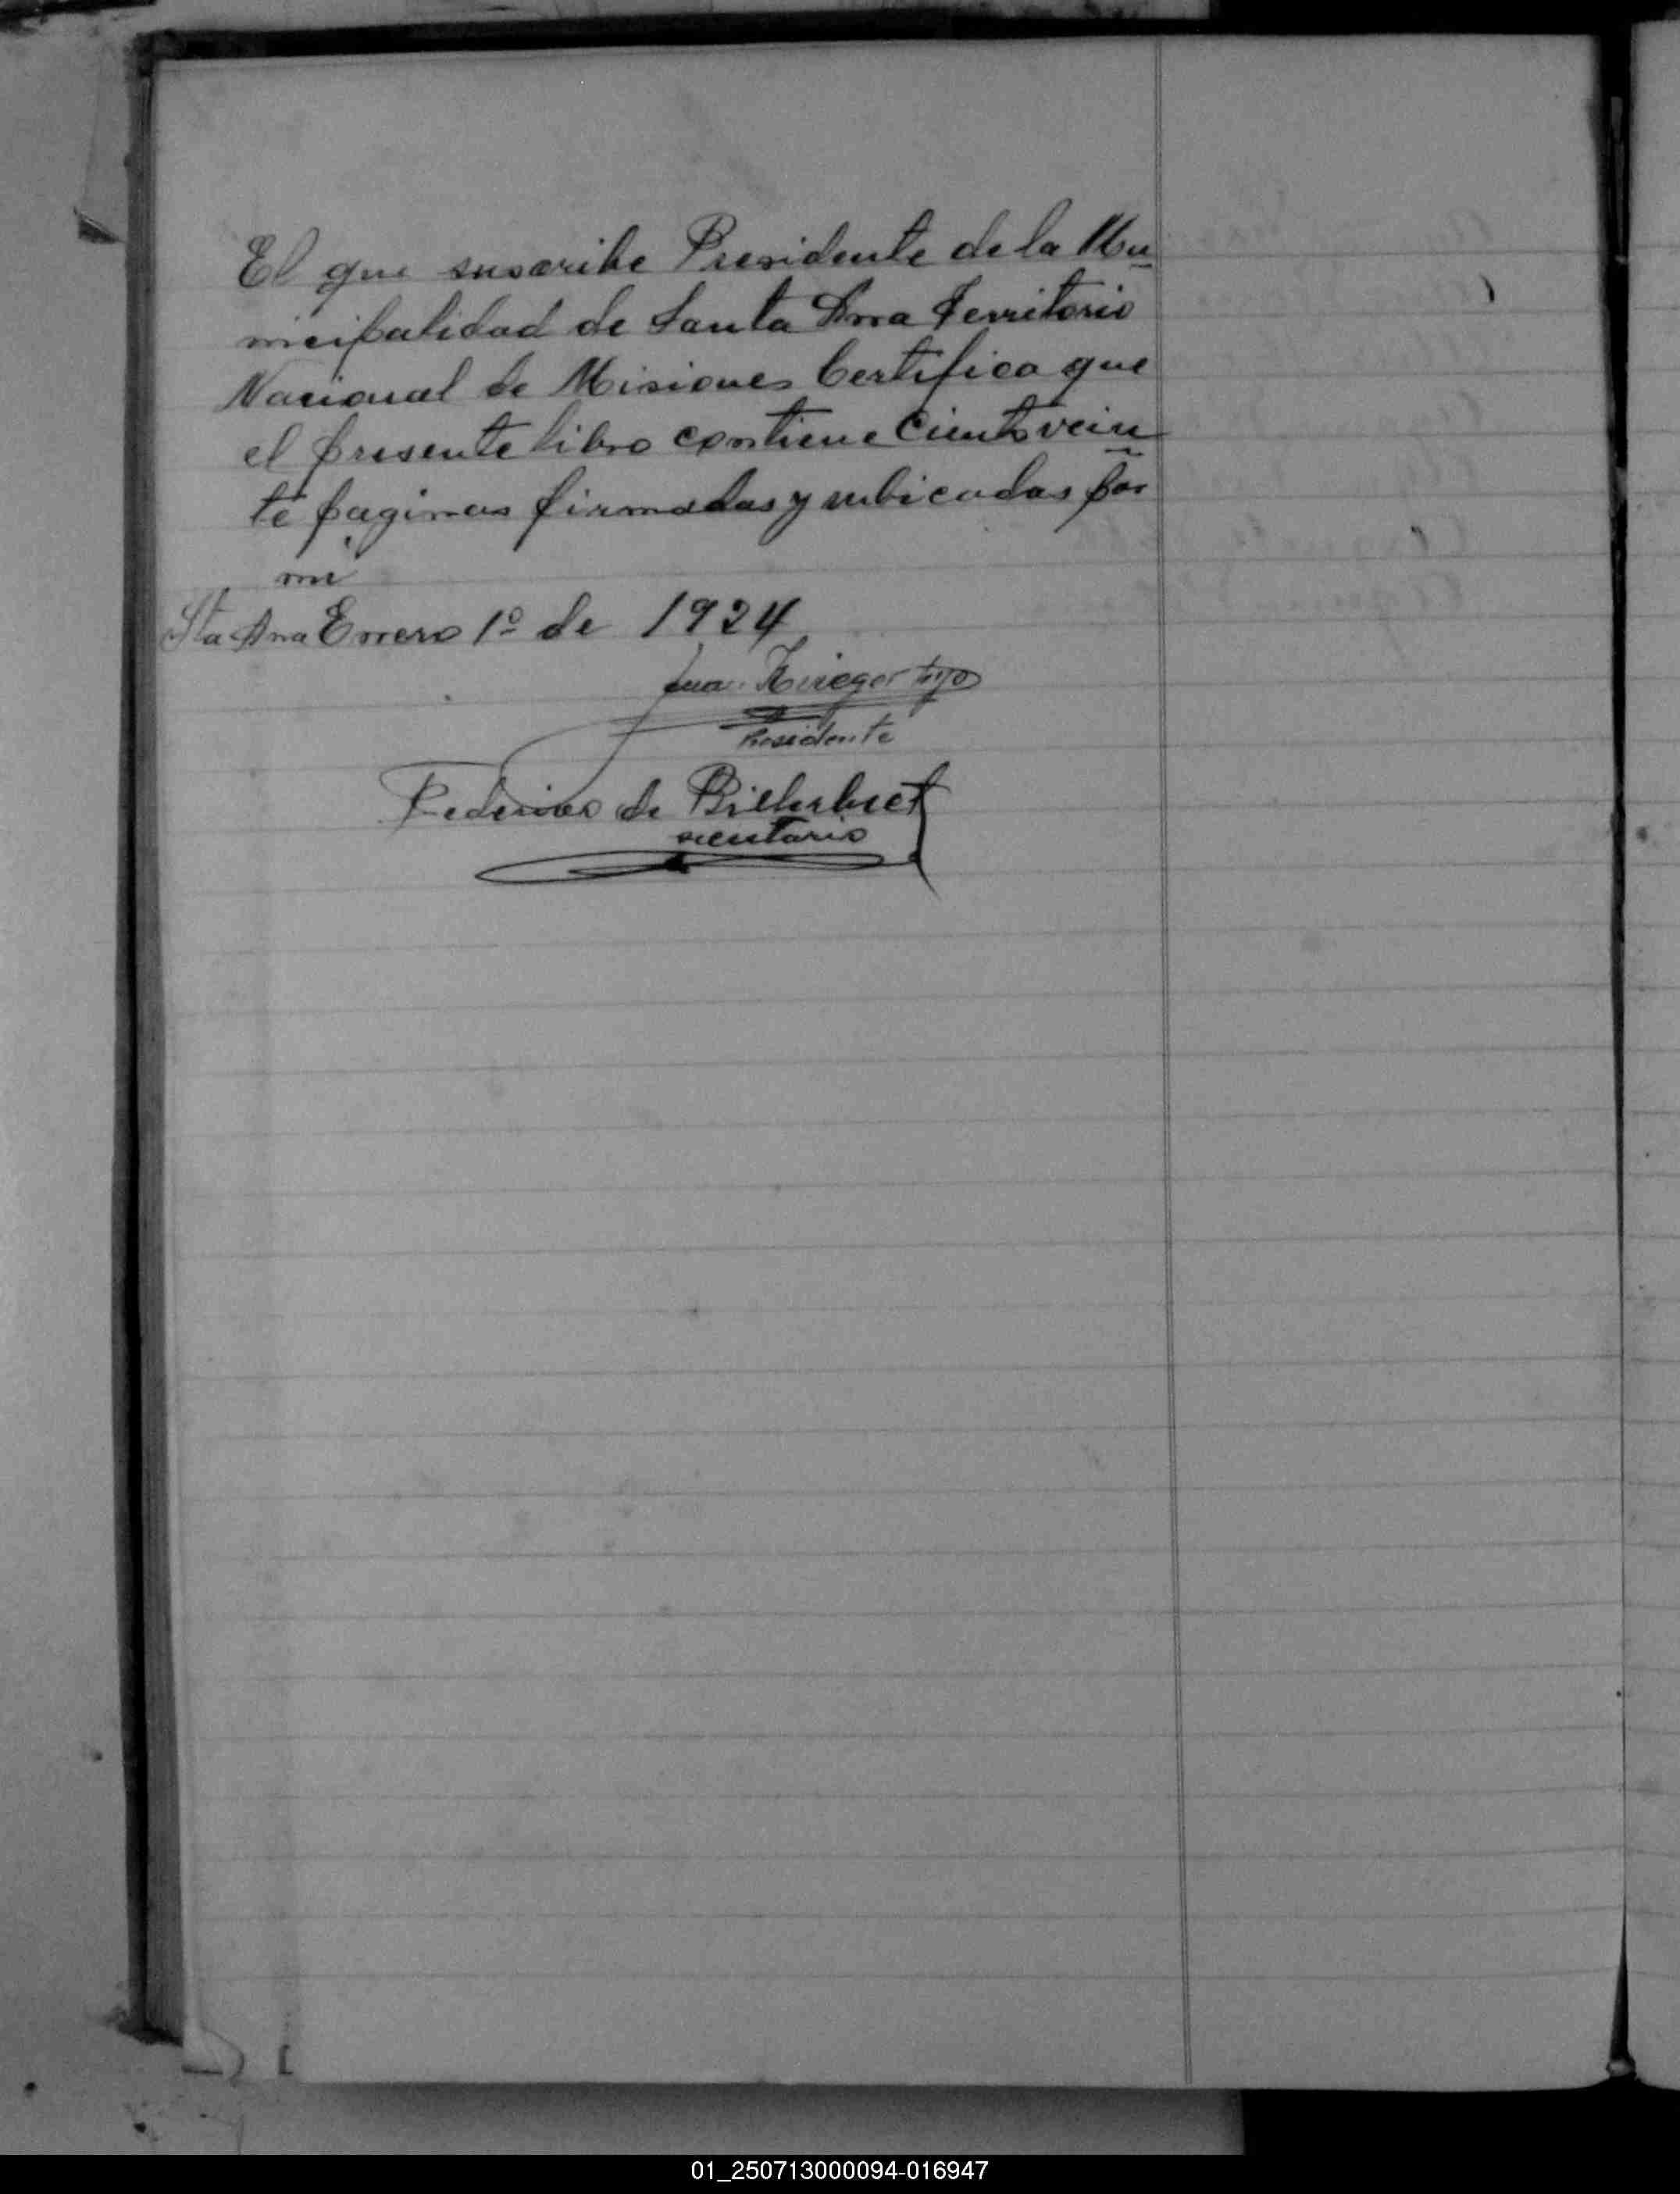 El que suscribe Presidente de la Mu
nicipalidad de Santa Ana Territorio
Nacional de Misiones Certifica que
el presente libro contiene Ciento vein
te paginas firmadas y rubicadas por
mi
Sta Ana Enero 1º de 1924
Juan Krieger hijo
Presidente
Federico de
secretario
01_250713000094-016947